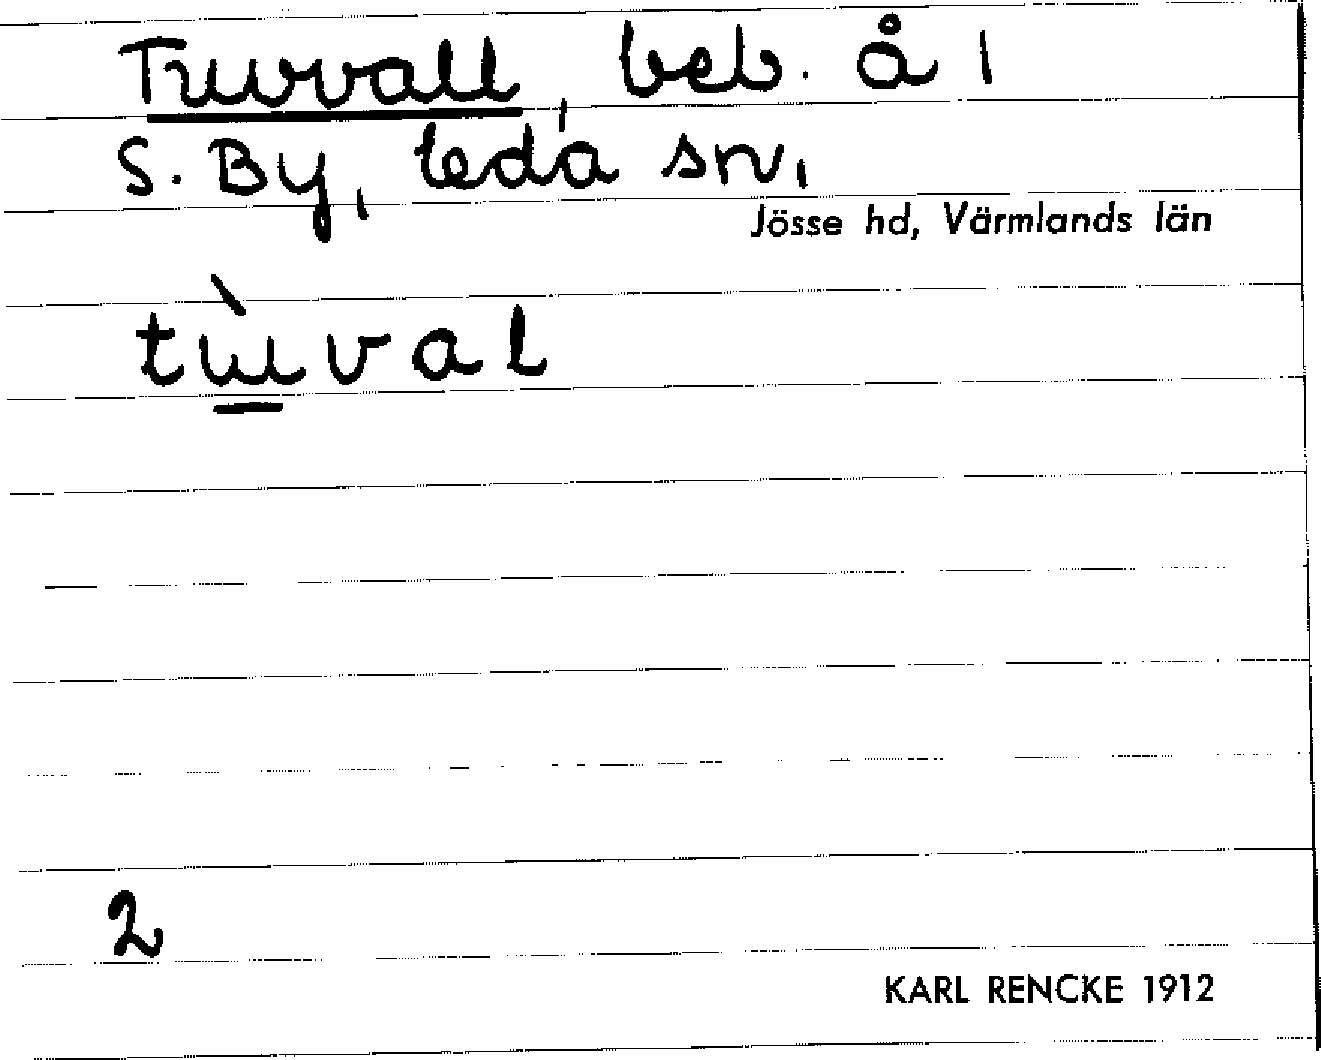 Tuvvall, beb. å 1
S. By, Eda sn,
Jösse hd, Värmlands län
2
KARL RENCKE 1912